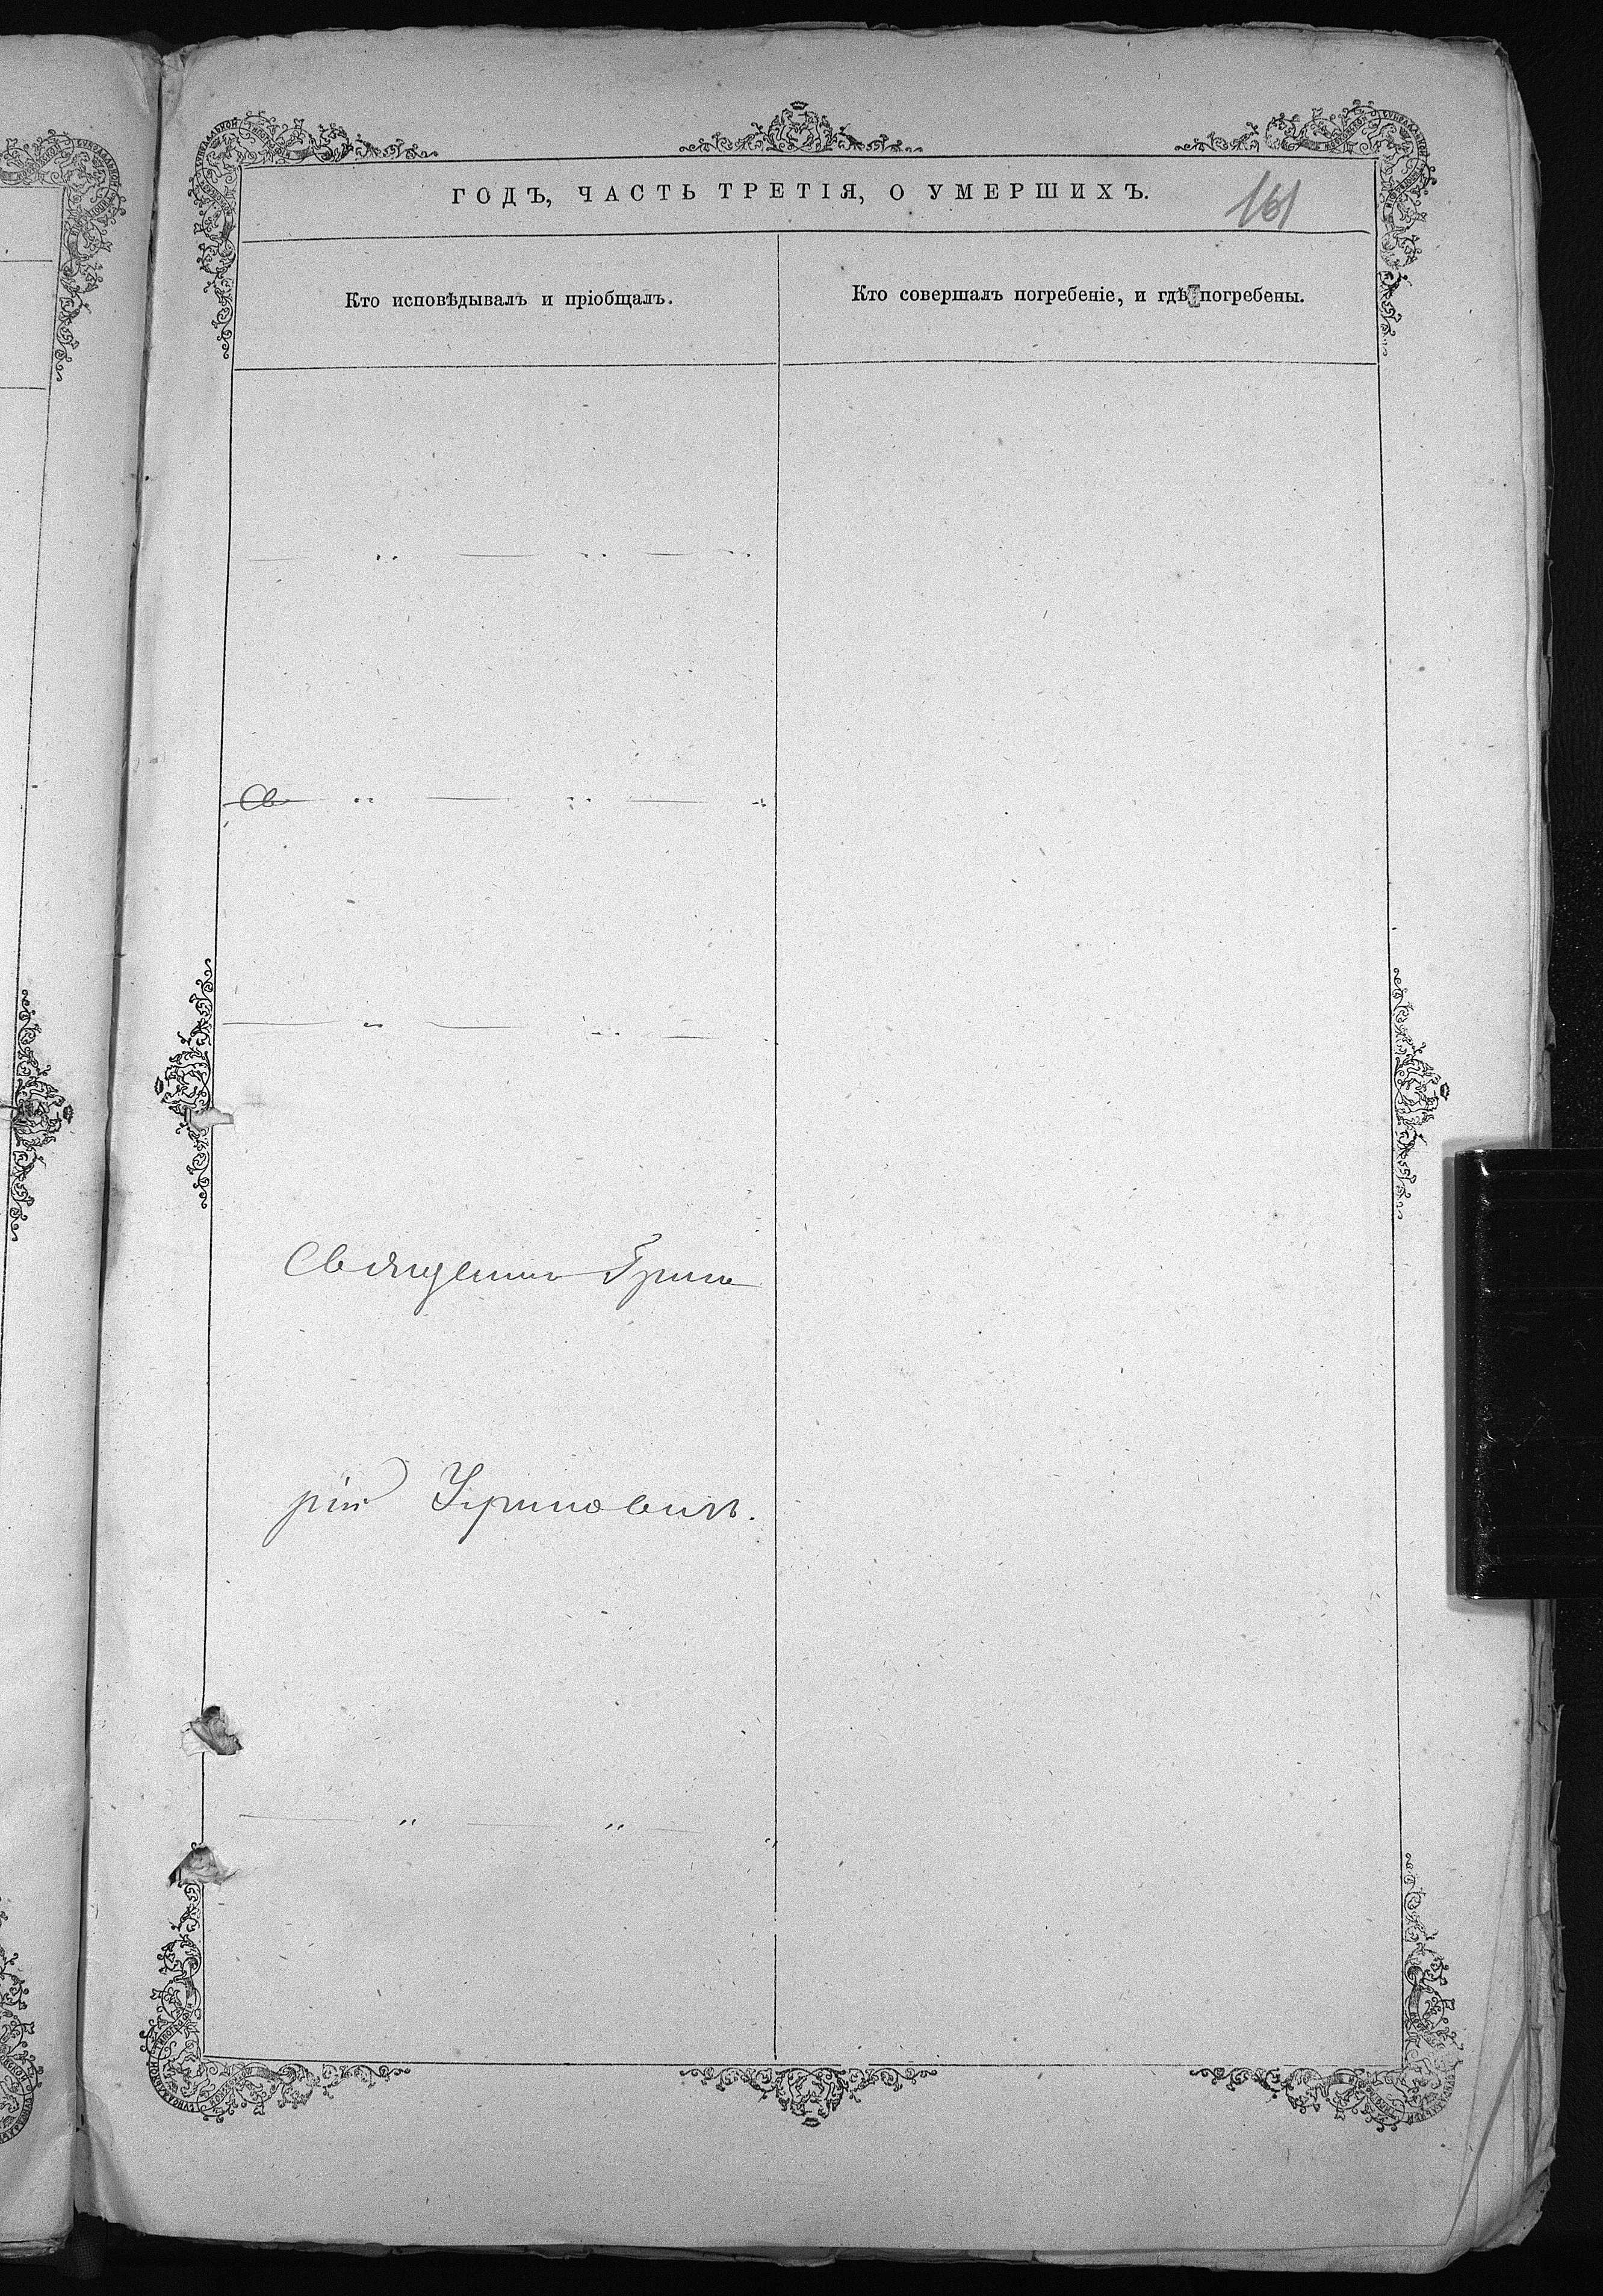 ГОДЪ, ЧАСТЬ ТРЕТІЯ, О УМЕРШИХЪ.
161
Кто исповѣдывалъ и пріобщалъ.
Кто совершалъ погребеніе, и гдѣ погребены.
Св
Священникъ Григо
рій